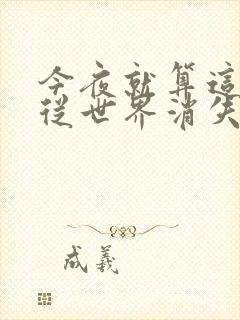 今夜就算這
從世界消失
成羲